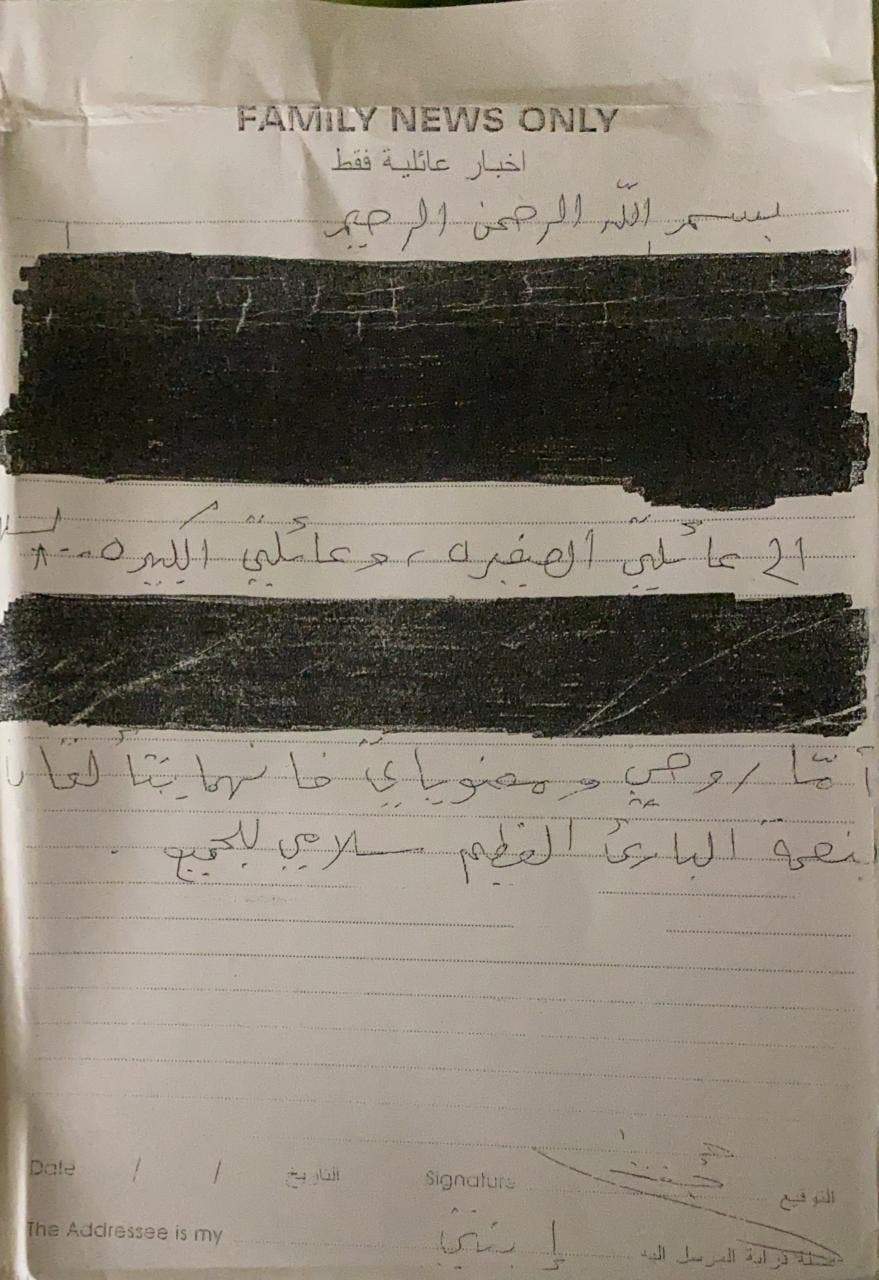 FAMILY NEWS ONLY
اخبار عائلية فقط
بسم اللّه الرحمن الرحيم
إلى عائلتي الصغيره، وعائلتي الكبيره
أمّا روحي ومعنوياتي فإنهما يتألقان
بنعمة البارئ العظيم سلامي للجميع .
Date / / التاريخ Signature التوقيع
The Addressee is my إبنتي صلة قرابة المرسل اليه